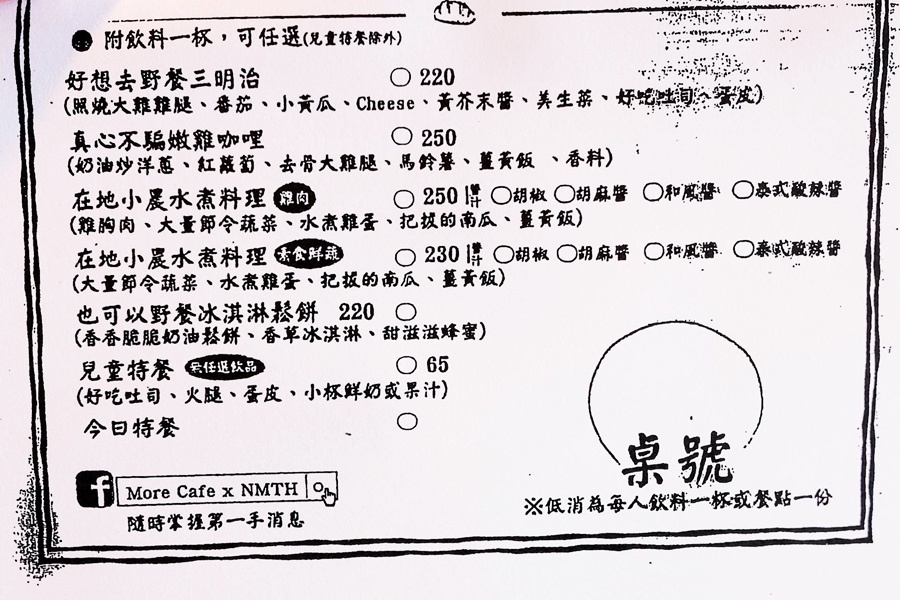 ● 附飲料一杯，可任選(兒童特餐除外)
好想去野餐三明治 ○ 220
(照燒大雞雞腿、番茄、小黃瓜、Cheese、黃芥末醬、美生菜、好吃吐司、蛋皮)
真心不騙嫩雞咖哩 ○ 250
(奶油炒洋蔥、紅蘿蔔、去骨大雞腿、馬鈴薯、薑黃飯 、香料)
在地小農水煮料理 雞肉 ○ 250 醬汁 ○胡椒 ○胡麻醬 ○和風醬 ○泰式酸辣醬
(雞胸肉、大量節令蔬菜、水煮雞蛋、把拔的南瓜、薑黃飯)
在地小農水煮料理 素食鮮蔬 ○ 230 醬汁 ○胡椒 ○胡麻醬 ○和風醬 ○泰式酸辣醬
(大量節令蔬菜、水煮雞蛋、把拔的南瓜、薑黃飯)
也可以野餐冰淇淋鬆餅 220 ○
(香香脆脆奶油鬆餅、香草冰淇淋、甜滋滋蜂蜜)
兒童特餐 無任選飲品 ○ 65
(好吃吐司、火腿、蛋皮、小杯鮮奶或果汁)
今日特餐 ○
桌號
※低消為每人飲料一杯或餐點一份
f More Cafe x NMTH
隨時掌握第一手消息